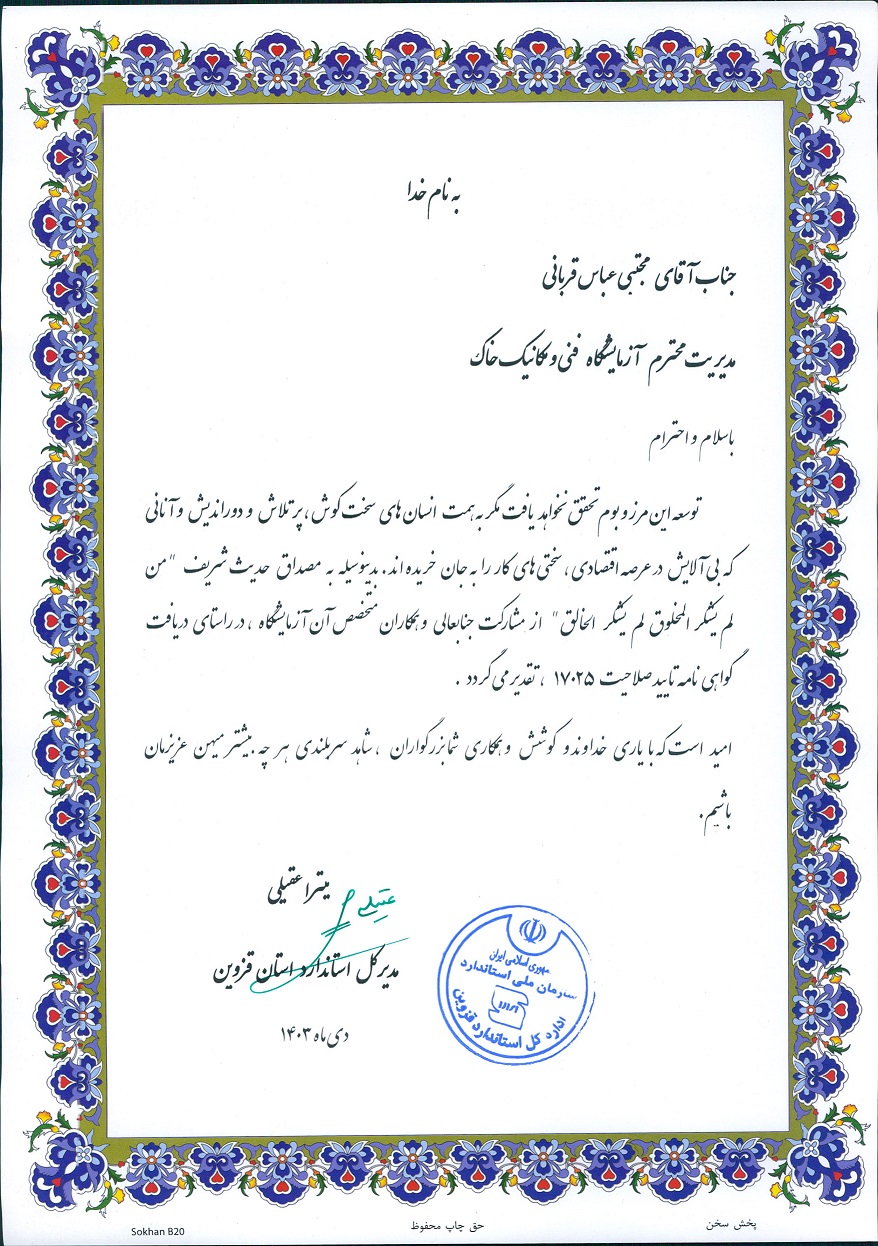 به نام خدا
جناب آقای مجتبی عباس قربانی
مدیریت محترم آزمایشگاه فنی و مکانیک خاک
باسلام و احترام
توسعه این مرز و بوم تحقق نخواهد یافت مگر به همت انسان های سخت کوش، پر تلاش و دوراندیش و آنانی
که بی آلایش در عرصه اقتصادی، سختی های کار را به جان خریده اند. بدینوسیله به مصداق حدیث شریف "من
لم یشکر المخلوق لم یشکر الخالق" از مشارکت جنابعالی و همکاران متخصص آن آزمایشگاه، در راستای دریافت
گواهی نامه تایید صلاحیت ۱۷۰۲۵، تقدیر می گردد.
امید است که با یاری خداوند و کوشش و همکاری شما بزرگواران، شاهد سربلندی هر چه بیشتر میهن عزیزمان
باشیم.
میترا عقیلی
عقیلی
مدیرکل استاندارد استان قزوین
دی ماه ۱۴۰۳
جمهوری اسلامی ایران
سازمان ملی استاندارد
اداره کل استاندارد قزوین
Sokhan B20
حق چاپ محفوظ
پخش سخن